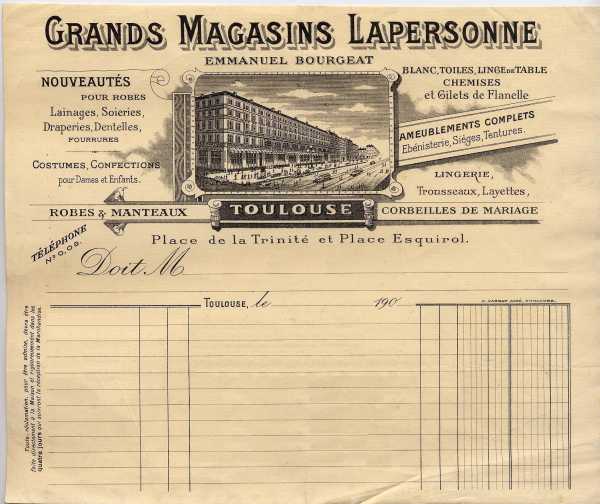 GRANDS MAGASINS LAPERSONNE
EMMANUEL BOURGEAT
NOUVEAUTÉS
POUR ROBES
Lainages, Soieries,
Draperies, Dentelles,
FOURRURES
COSTUMES, CONFECTIONS
pour Dames et Enfants.
ROBES & MANTEAUX
BLANC, TOILES, LINGE DE TABLE
CHEMISES
et Gilets de Flanelle
AMEUBLEMENTS COMPLETS
Ebénisterie, Sièges, Tentures.
LINGERIE,
Trousseaux, Layettes,
CORBEILLES DE MARIAGE
TOULOUSE
Place de la Trinité et Place Esquirol.
TÉLÉPHONE
Nº 0,09.
Doit M
TOULOUSE, le 190
TOULOUSE.
Toute réclamation, pour être admise, devra être
faite directement à la Maison et rigoureusement dans les
quatre jours qui suivront la réception de la Marchandise.